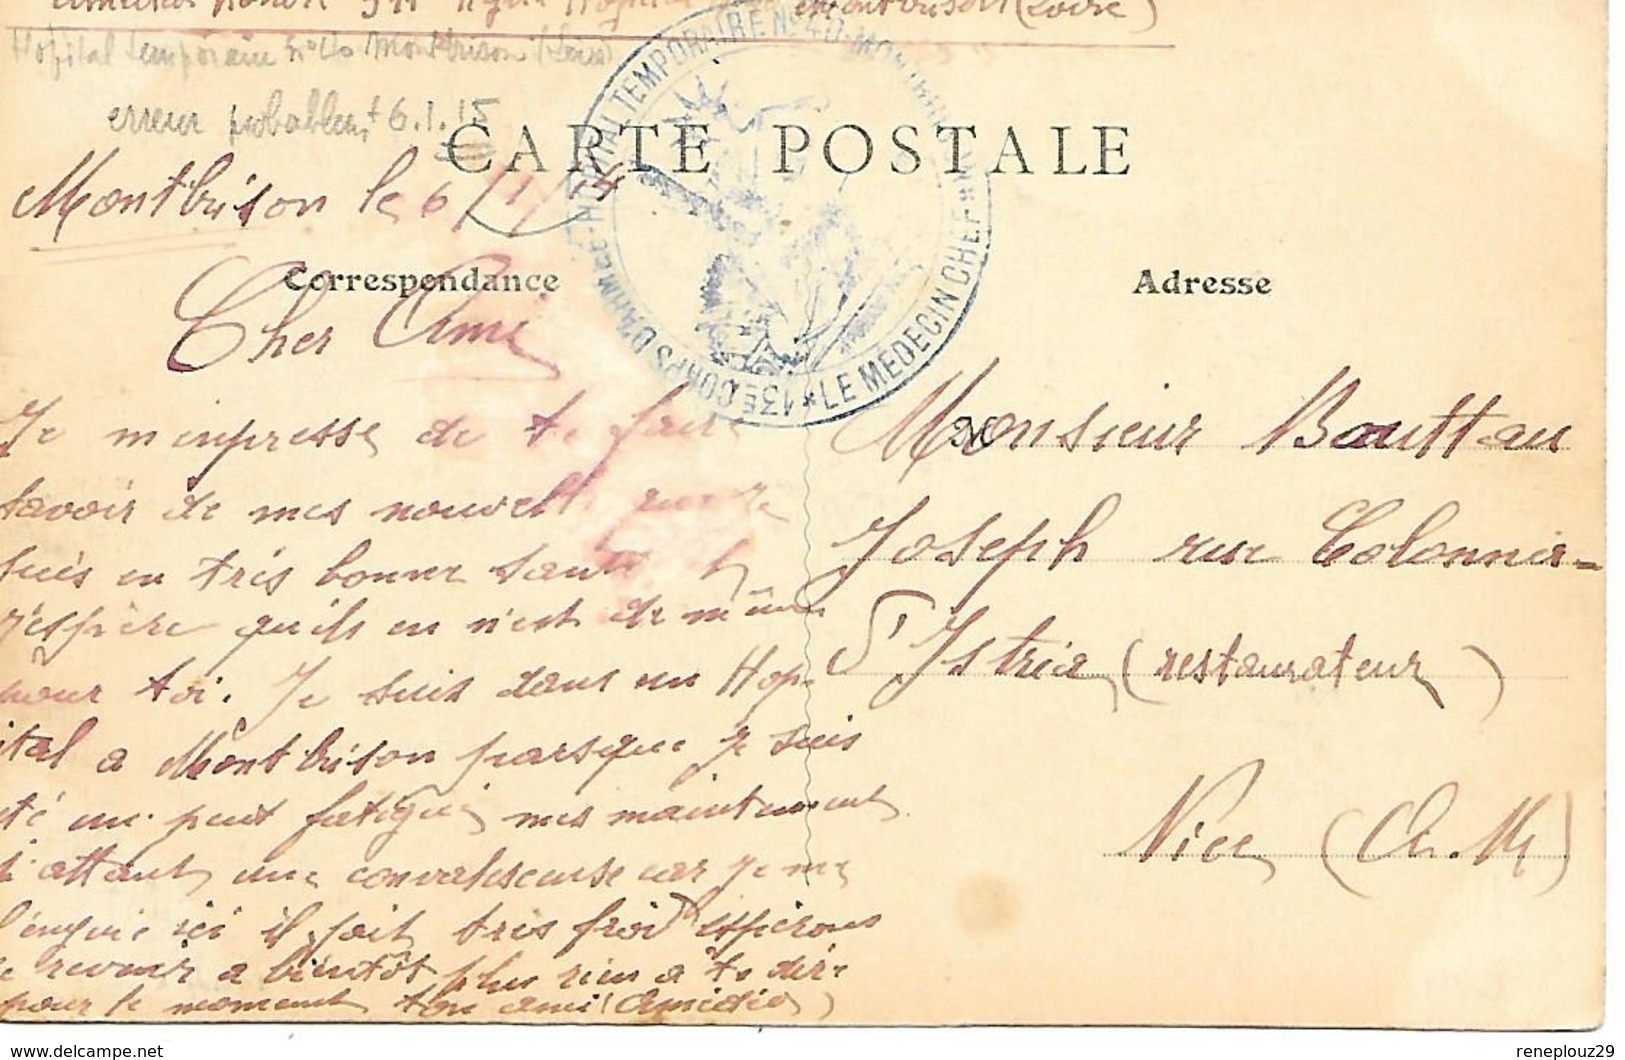 Montbrison (Loire)
Hopital temporaire n° 40 Montbrison (Loire)
erreur probablemt 6.1.15
CARTE POSTALE
13E CORPS D'ARMÉE - HOPITAL TEMPORAIRE N° 40 - MONTBRISON
* LE MEDECIN CHEF *
Montbrison le 6/1/14
Correspondance
Cher Ami
Je m'enpresse de te faire
savoir de mes nouvelle
suis en tres bonne santé
j'espère quils en n'est de même
pour toi. Je suis dans un Hop-
ital a Montbrison parsque je suis
été un peut fatigué mes maintenent
j'attant une convalesense car je me
l'enguie ici il fait tres froid esperons
de revenir a bientôt plus rien a te dire
pour le moment ton ami (Amédée)
Adresse
Monsieur Bouttau
Joseph rue Colonna-
d'Istria (restaurateur)
Nice (A.M)
reneplouz29